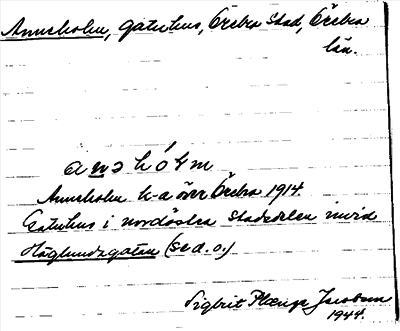 Anneholm, gatuhus, Örebro stad, Örebro
län.
anəhólm
Anneholm k-a över Örebro 1914.
Gatuhus i nordöstra stadsdelen invid
Höglundagatan (se d. o.)
Sigbrit Plænge Jacobson
1944.